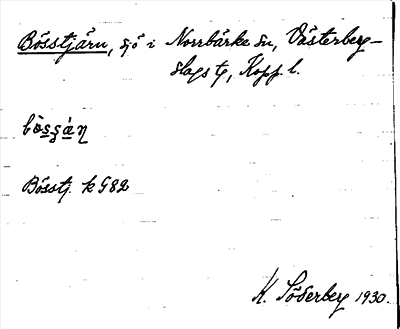 Bösstjärn, sjö i Norrbärke sn, Västerberg-
slags tg, Kopp. l.
Bösstj. k G82
K. Söderberg 1930.